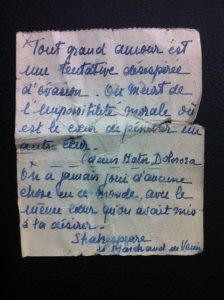 *Tout grand amour est
une tentative désespérée
d'évasion. On meurt de
l'impossibilité morale où
est le cœur de pénétrer un
autre cœur.
(dans Mater Dolorosa
On a jamais joui d'aucune
chose en ce monde, avec le
même cœur qu'on avait mis
à la désirer.
Shakespeare
le Marchand de Venise